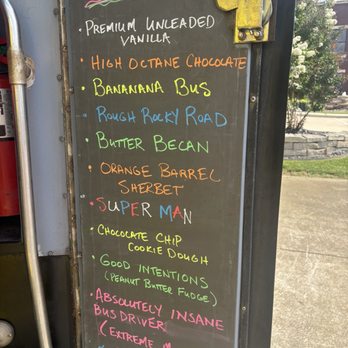 • Premium Unleaded
Vanilla
• High Octane Chocolate
• Bananana Bus
• Rough Rocky Road
• Butter Becan
• Orange Barrel
Sherbet
• Super Man
• Chocolate Chip
Cookie Dough
• Good Intentions
(Peanut Butter Fudge)
• Absolutely Insane
Bus Driver
(Extreme